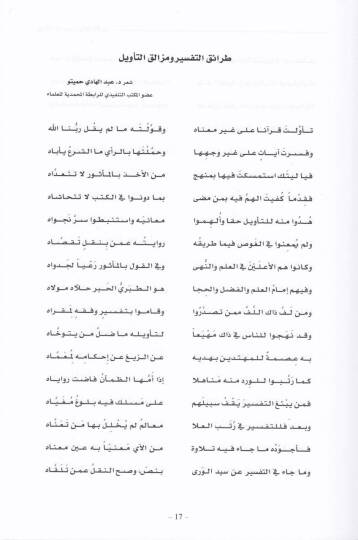 طرائق التفسير ومزالق التأويل
شعر د. عبد الهادي حميتو
عضو المكتب التنفيذي للرابطة المحمدية للعلماء
تـأوَّلـتَ قـرآنـا على غـير معـناه وقـوَّلـتَـه ما لـم يـقُـل ربُّـنـا الله
وفسـرت آيـات على غير وجهـهـا وحمَّلْتَها بالرأي ما الشرعُ يأباه
فيا ليتك استمسكتَ فيها بمنهج من الأخـذ بـالمـأثـور لا تتعـدَّاه
فقِدْماً كُفِيتَ الهمَّ فيه بمن مضى بما دونـوا في الكتب لا تتحاشاه
هُـدوا منه للتأويل حقا وأُلهمـوا معانيَـه واستنبطوا سـرَّ نجـواه
ولم يُمعِنوا في الغوص فيما طريقه روايتُـه عـمـن بنـقـل تقـصَّـاه
وكانوا هم الأعلَيْنَ في العلم والنُّهى وفي القول بالمأثور رَعْياً لجدواه
وفيهم إمامُ العلم والفضل والحجا هو الطبَريُّ الحَبر حلاه مولاه
ومن لَـفَّ ذاك اللَّـفَّ ممن تصدَّرُوا وقامـوا بتفسير وفقـه لمـقـراه
وقد نهَجـوا للناس في ذاك مَهْيَعاً لتأويله ما ضـلَّ مـن يـتـوخَّـاه
به عـصـمـةٌ للمهـتـدين بهديـه عن الزيـغ عن إحكامه
كما رتَّبـوا للـورد منه مناهـلا إذا أمَّـهـا الظمآنُ فاضت روايـاه
فمن يبتـغ التفسيرَ يَقْـفُ سبيلَهم على مَسلك فيه بلوغُ
وبعـد فللتفسير في رُتَـب العـلا معالـمُ لم يُخْلل بها مَـن
فـأجـوَدُه ما جـاء فيـه تـلاوة من الآي مَعنيّاً به عين معناه
وما جاء في التفسير عن سيد الورى بنصٍّ، وصح النقل عمن تلقَّاه
- 17 -